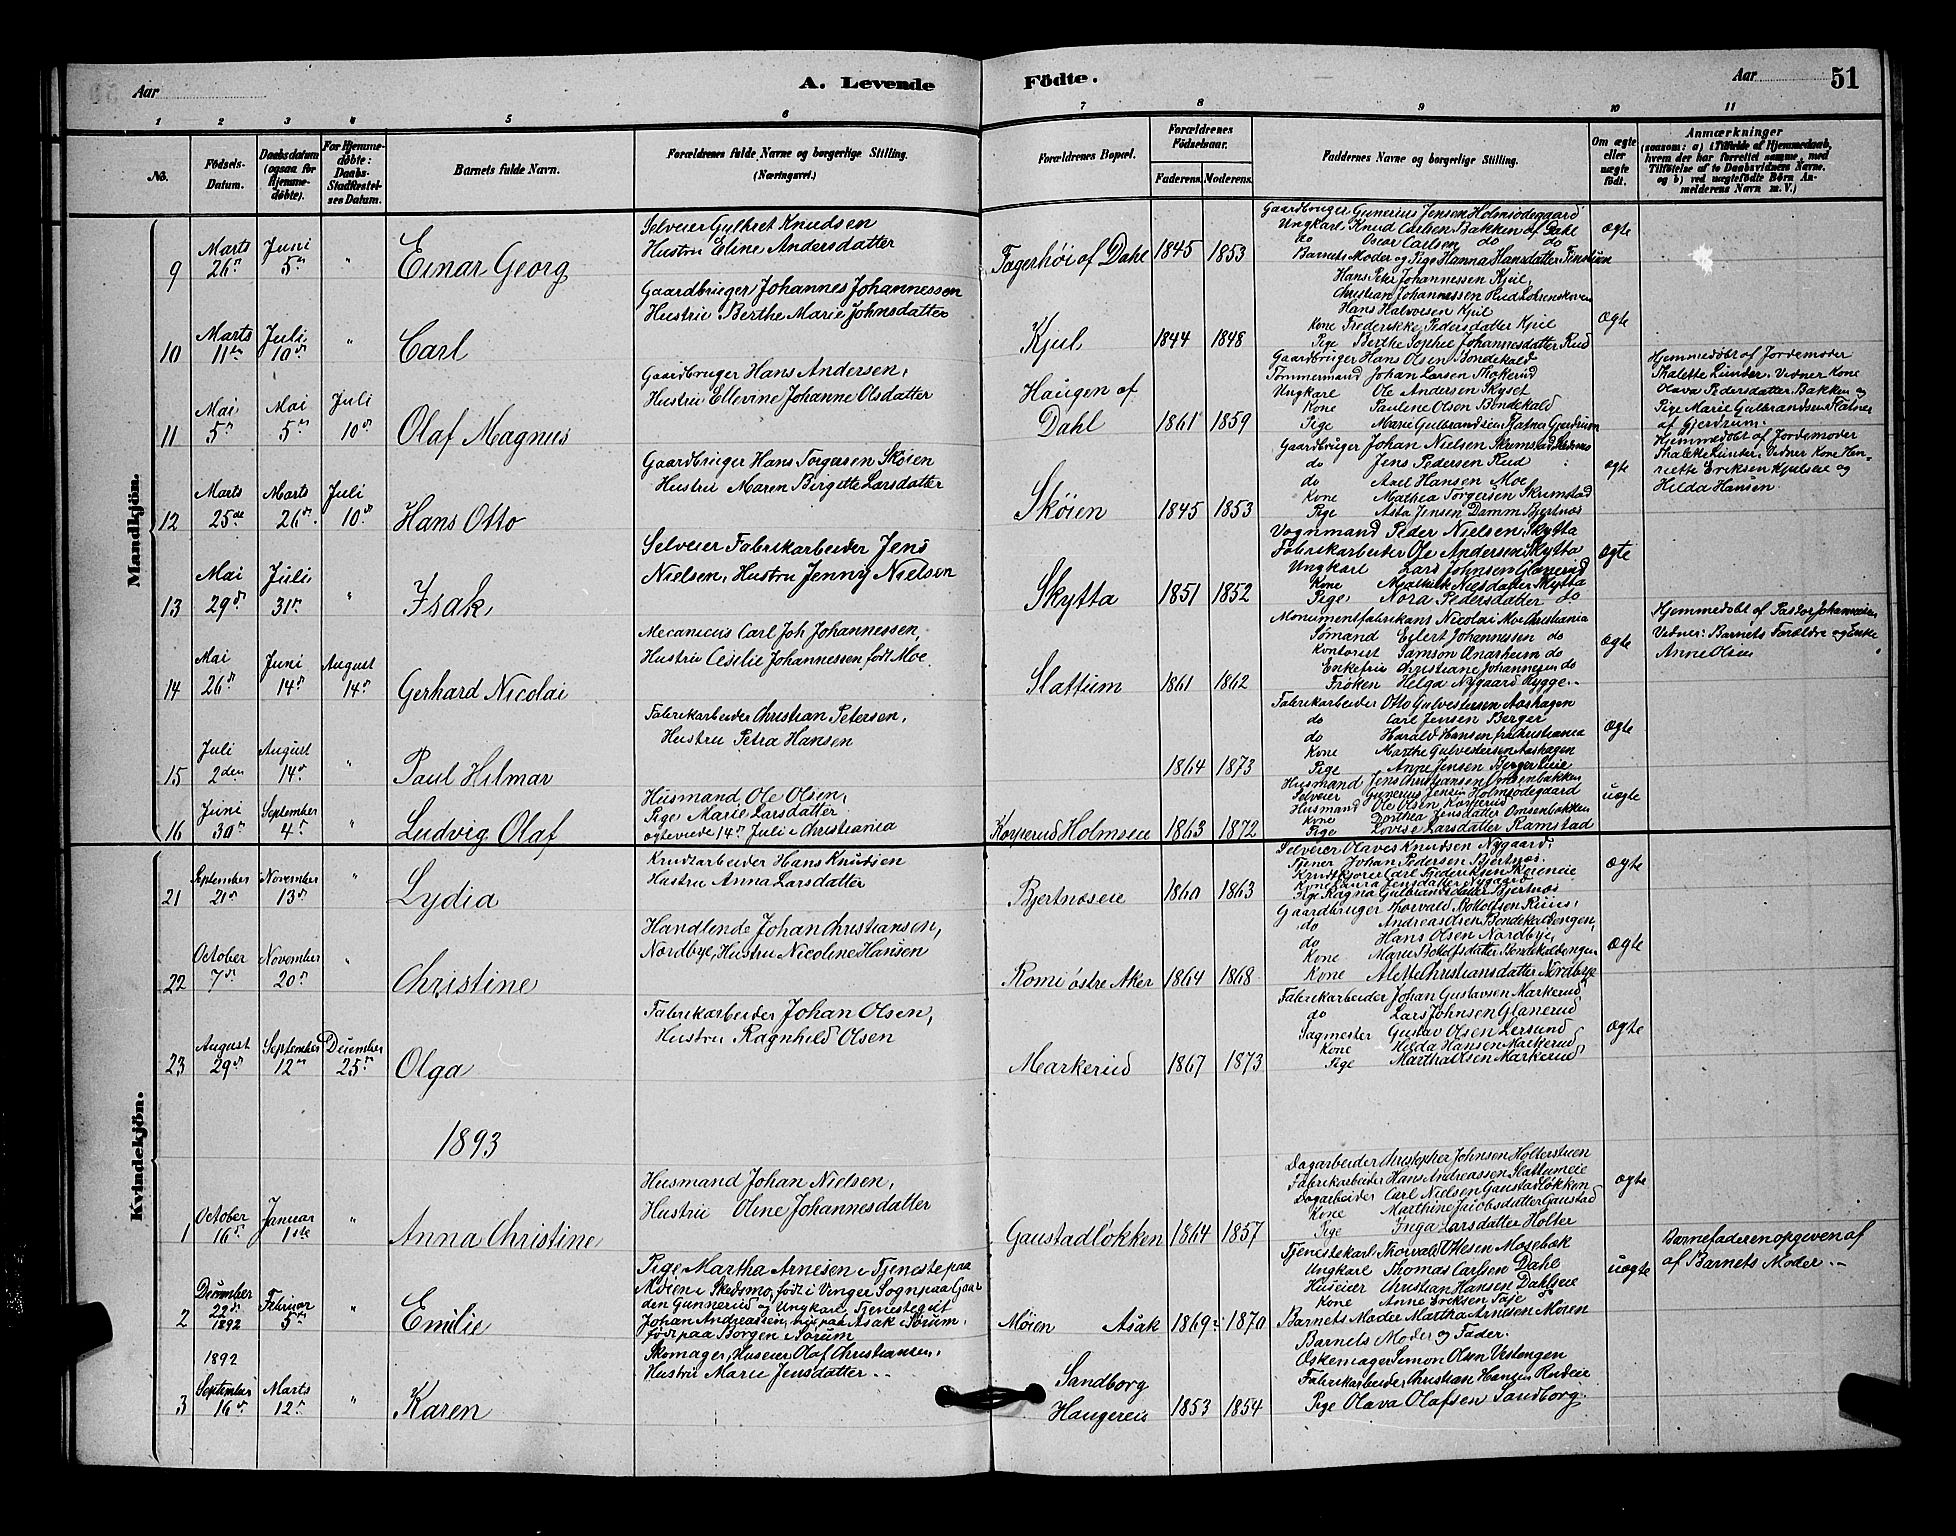 Aar
A. Levende
Födte.
Aar
51
1 2 3 4 5 6 7 8 9 10 11
No.
Fødsels-Datum.
Daabsdatum (ogsaa for Hjemmedøbte).
For Hjemmedøbte: Daabs-Stadfæstelses Datum.
Barnets fulde Navn.
Forældrenes fulde Navne og borgerlige Stilling.
(Næringsvei.)
Forældrenes Bopæl.
Forældrenes Fødselsaar.
Faderens. Moderens.
Faddernes Navne og borgerlige Stilling.
Om ægte eller uægte født.
Anmærkninger
(saasom: a) i Tilfælde af Hjemmedaab, hvem der har forrettet samme, med Tilføielse af to Daabsvidners Navne, og b) ved uægtefødte Børn Anmelderens Navn m. V.)
Mandkjön.
9
Marts 26de
Juni 5te
"
Einar Georg
Selveier Gulbret Knudsen
Hustru Eline Andersdatter
Fagerhöi af Dahl
1845 1853
Gaardbruger Gunerius Jensen Holmsödegaard
Ungkarl Knud Carlsen Bakken af Dahl
do Oscar Carlsen do do
Barnets Moder og Pige Hanna Hansdatter
ægte
10
Marts 11te
Juli 10de
"
Carl
Gaardbruger Johannes Johannessen
Hustru Berthe Marie Johnsdatter
Kjul
1844 1848
Hans Peter Johannessen Kjul,
Christian Johannessen Rud
Hans Halvorsen Kjul
Kone Frederikke Pedersdatter Kjul
Pige Berthe Sophie Johannesdatter Rud
ægte
11
Mai 5te
Mai 5te
Juli 10de
Olaf Magnus
Gaardbruger Hans Andersen,
Hustru Ellevine Johanne Olsdatter
Haugen af
Dahl
1861 1859
Gaardbruger Hans Olsen Böndekald
Tömmermand Johan Larsen
Ungkarl Ole Andersen Skyset
Kone Pauline Olsen Böndekald
Pige Marie Gulbrandsen Flatner Gjerdrum
Hjemmedöbt af Jordemoder
Thalette Lunder. Vidner Kone
Olava Pedersdatter Bakken og
Pige Marie Gulbrandsen Flatner
af Gjerdrum.
12
Marts 25de
Marts 26de
Juli 10de
Hans Otto
Gaardbruger Hans Torgersen Sköien
Hustru Maren Birgitte Larsdatter
Sköien
1845 1853
Gaardbruger Johan Nielsen Skumstad
do Jens Pedersen Rud
do Axel Hansen Moe
Kone Mathea Torgersen Skumstad
Pige Asta Jensen Damm Bjertnæs
ægte
Hjemmedöbt af Jordemoder
Thalette Lunder. Vidner Kone Henriette Eriksen Kjulseie og
Hilda Hansen.
13
Mai 29de
Juli 31te
"
Isak
Selveier Fabrikarbeider Jens
Nielsen, Hustru Jenny Nielsen
Skytta
1851 1852
Vognmand Peder Nielsen Skytta
Fabrikarbeider Ole Andersen Skytta
Ungkarl Lars Johnsen Glanerud
Kone Nielsdatter Skytta
Pige Nora Pedersdatter do
ægte
14
Mai 26de
Juni 14de
August 14de
Gerhard Nicolai
Mecanicus Carl Joh Johannessen,
Hustru Cesilie Johannessen født Moe.
Slattum
1861 1862
Monumentfabrikant Nicolai Moe Christiania
Sömand Eilert Johannesen do
Kontorist Samson Anarheim do
Enkefru Christiane Johannesen do
Fröken Helga Nygaard Rygge..
ægte
Hjemmedöbt af Pastor Johannesen
Vidner: Barnets Forældre og Enke
Anne Olsen
15
Juli 2den
August 14de
"
Paul Hilmar
Fabrikarbeider Christian Petersen,
Hustru Petra Hansen
1864 1873
Fabrikarbeider Otto Gulvestersen Aashagen
do Carl Jensen Berger
do Harald Hansen fra Christiania
Kone Marthe Gulvestersen Aashagen
Pige Anne Jensen Bergerseie
ægte
16
Juni 30te
September 4de
"
Ludvig Olaf
Husmand Ole Olsen,
Pige Marie Larsdatter
ægteviede 14de Juli i Christiania
Korperud Holmseie
1863 1872
Husmand Jens Christiansen Omsenbakken
Selveier Gunerius Jensen Holmsödegaard
Husmand Ole Olsen Korperud
Kone Dorthea Jensdatter Omsenbakken
Pige Lovise Larsdatter Ramstad
uægte
Kvindekjön.
21
September 21de
November 13de
"
Lydia
Krudtarbeider Hans Knudsen
Hustru Anna Larsdatter
Bjertnæseie
1860 1863
Selveier Olaves Knudsen Nygaard.
Tjener Johan Pedersen Bjertnæs.
Krudtkjörer Carl Frederiksen Skoieneie
Kone Laura Jensdatter Nygaard
Pige Ragna Gulbrandsdatter Bjertnæs
ægte
22
October 7de
November 20de
"
Christine
Handlende Johan Christiansen,
Nordbye, Hustru Nicoline Hansen
Rom i östre Aker
1864 1868
Gaardbruger Thorvald Rolfsen Ruus,
do Andreas Olsen Bondekaldengen,
do Hans Olsen Nordbye,
Kone Marie Rolfsdatter Bondekaldengen
Kone Alette Christiansdatter Nordbye
ægte
23
August 29de
September 12te
December 25de
Olga
Fabrikarbeider Johan Olsen,
Hustru Ragnhild Olsen
Markerud
1867 1873
Fabrikarbeider Johan Gustavsen Markerud
do Lars Johnsen Glanerud
Sagmester Gustav Olsen Lersund
Kone Hilda Hansen Markerud
Pige Martha Olsen Markerud
ægte
1893
1
October 16de
Januar 1ste
"
Anna Christine
Husmand Johan Nielsen,
Hustru Oline Johannesdatter
Gaustadlökken
1864 1857
Dagarbeider Christopher Johnsen Holterstuen
Fabrikarbeider Hans Andreassen Slattumeie
Dagarbeider Carl Nielsen Gaustadløkken
Kone Marthine Jacobsdatter Gaustad
Pige Inga Larsdatter Holter
ægte
2
December 22de 1892
Februar 5te
"
Emilie
Pige Martha Arnesen i Tjeneste paa
Møien i Skedsmo, født i Vinger Sogn paa Gaarden Gunnerud og Ungkarl, Tjenestegut
Johan Andreassen, paa Asak i Sørum,
født paa Borgen i Sørum
Möien Asak
1869 1870
Tjenestekarl Thorvald Ottesen Mosebæk
Ungkarl Thomas Carlsen Dahl
Huseier Christian Hansen Dahleie
Kone Anne Eriksen
Barnets Moder Martha Arnesen Möien
Barnets Moder og Fader.
uægte
Barnefaderen opgeven af
af Barnets Moder..
3
1892
September 16de
Marts 12te
"
Karen
Skomager, Huseier Olaf Christiansen,
Hustru Marie Jensdatter..
Sandborg
Haugereie
1853 1854
Æskemager Simon Olsen Vestengen
Fabrikarbeider Christian Hansen Rudeie
Pige Olava Olafsen Sandborg.